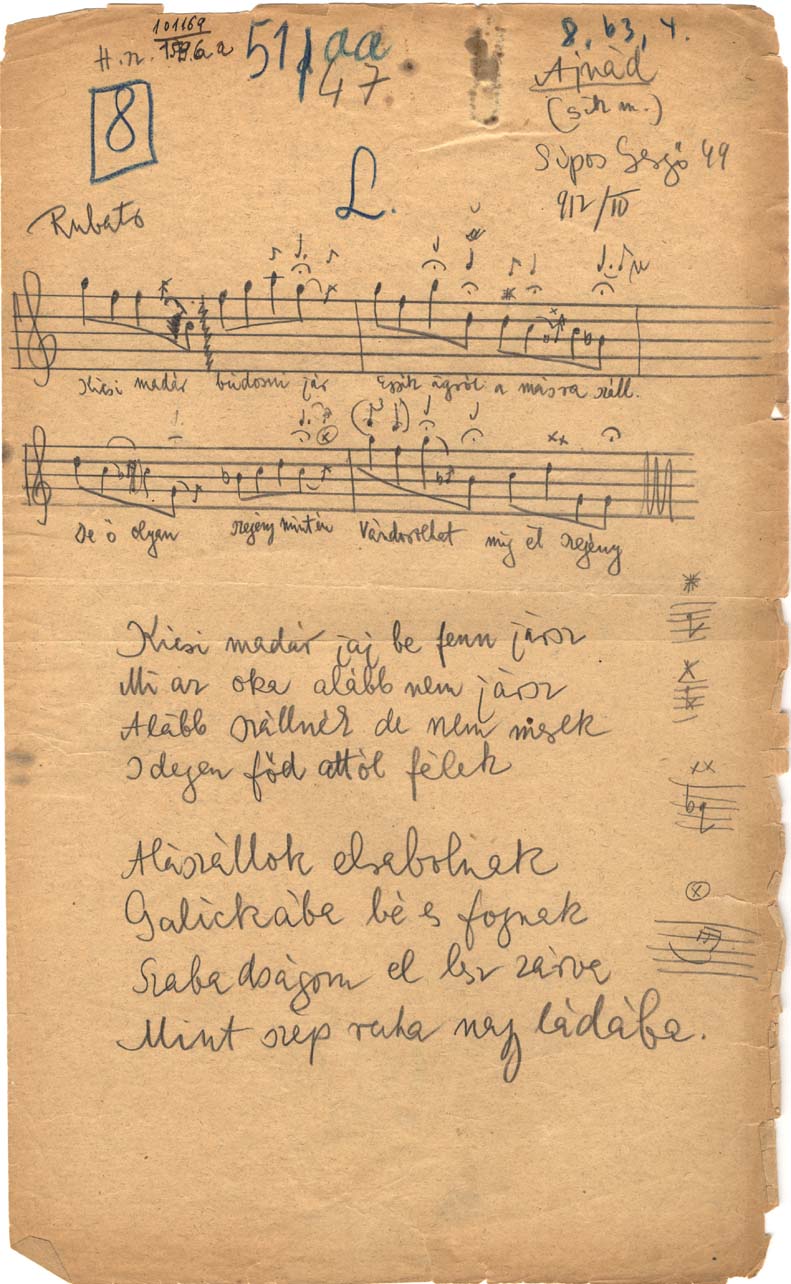 101169
H.n. 1596a
51/aa
47
8, b3, 4.
8
Ajnád
(sík m.)
L.
912/IV
Rubato
Kicsi madár búdosni jár Egyik ágról a másra száll.
De ő olyan szegény mint én Várdosolhat míg él szegény
Kicsi madár jaj be fenn jársz
Mi az oka alább nem jársz
Alább szállnék de nem merek
Idegen föd attól félek
Alászállok elrabolnak
Galickába bé es fognak
Szabadságom el lesz zárva
Mint szép ruha nagy ládába.